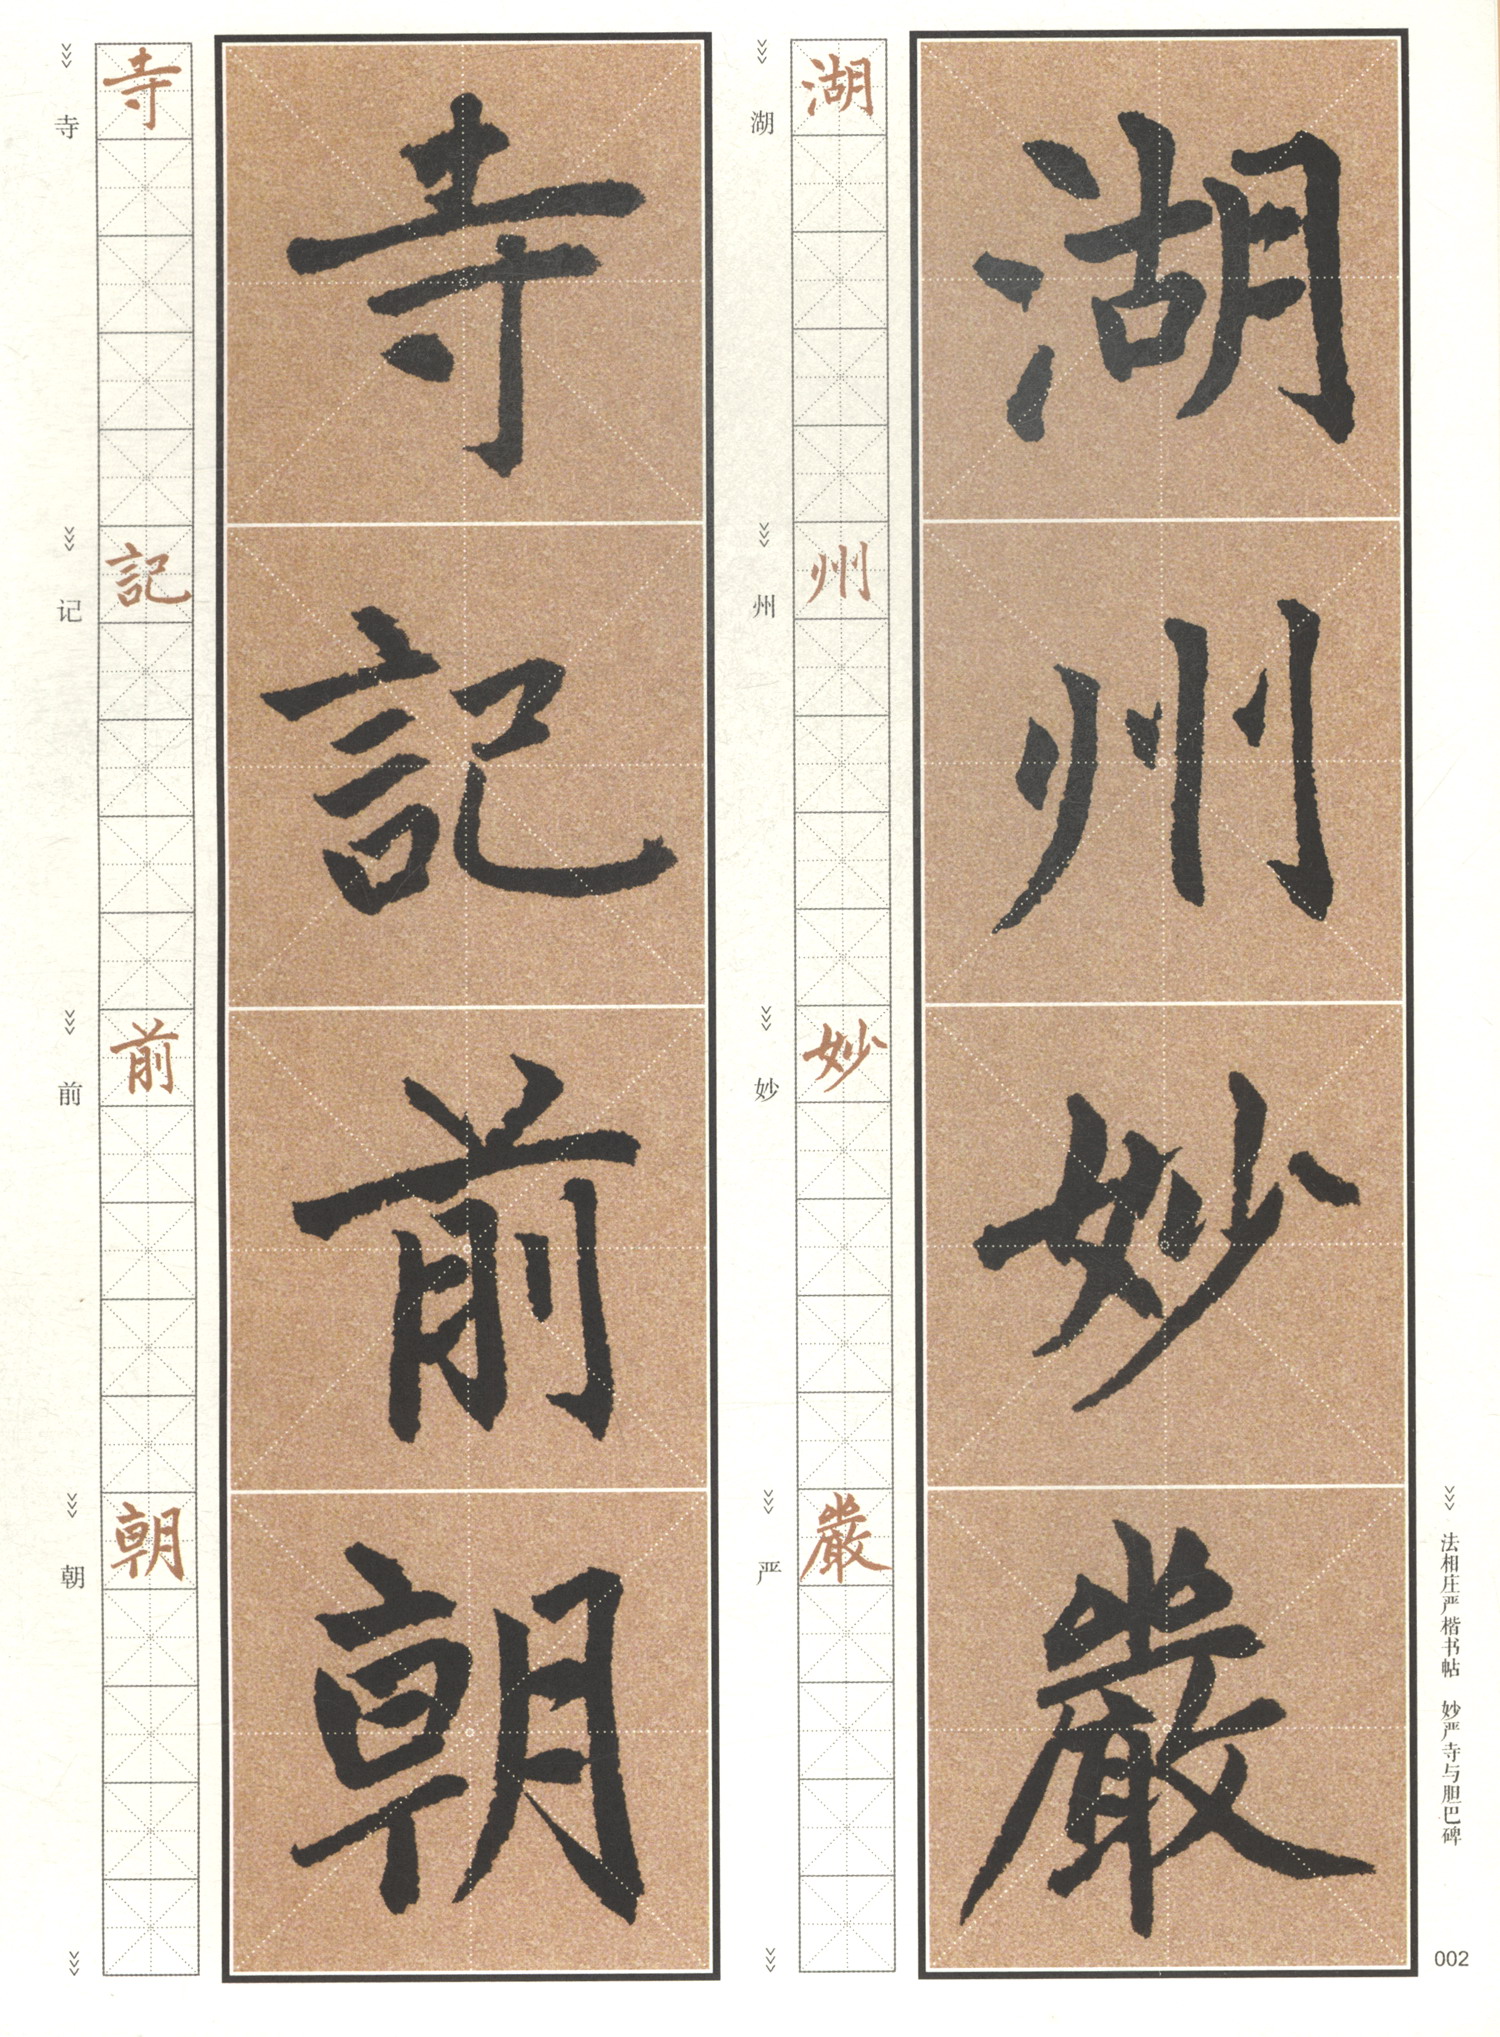 法相庄严楷书帖 妙严寺与胆巴碑
湖州妙嚴
湖州妙嚴
湖州妙严
寺記前朝
寺記前朝
寺记前朝
002